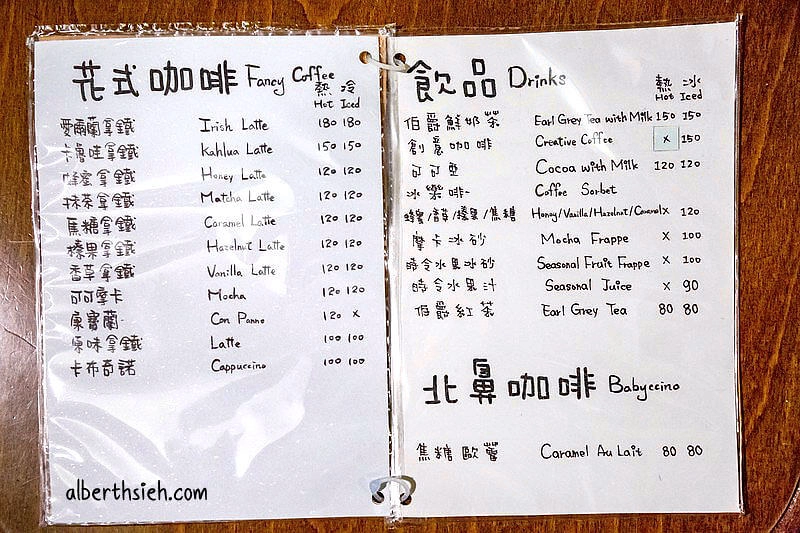 花式咖啡 Fancy Coffee
熱 冷
Hot Iced
愛爾蘭拿鐵 Irish Latte 180 180
卡魯哇拿鐵 Kahlua Latte 150 150
蜂蜜拿鐵 Honey Latte 120 120
抹茶拿鐵 Matcha Latte 120 120
焦糖拿鐵 Caramel Latte 120 120
榛果拿鐵 Hazelnut Latte 120 120
香草拿鐵 Vanilla Latte 120 120
可可摩卡 Mocha 120 120
康寶蘭 Con Panno 120 x
原味拿鐵 Latte 100 100
卡布奇諾 Cappuccino 100 100
alberthsieh.com
飲品 Drinks
熱 冰
Hot Iced
伯爵鮮奶茶 Earl Grey Tea with Milk 150 150
創意咖啡 Creative Coffee x 150
可可亞 Cocoa with Milk 120 120
冰樂啡 Coffee Sorbet
蜂蜜/香草/榛果/焦糖 Honey/Vanilla/Hazelnut/Caramel x 120
摩卡冰砂 Mocha Frappe x 100
時令水果冰砂 Seasonal Fruit Frappe x 100
時令水果汁 Seasonal Juice x 90
伯爵紅茶 Earl Grey Tea 80 80
北鼻咖啡 Babyccino
焦糖歐蕾 Caramel Au Lait 80 80